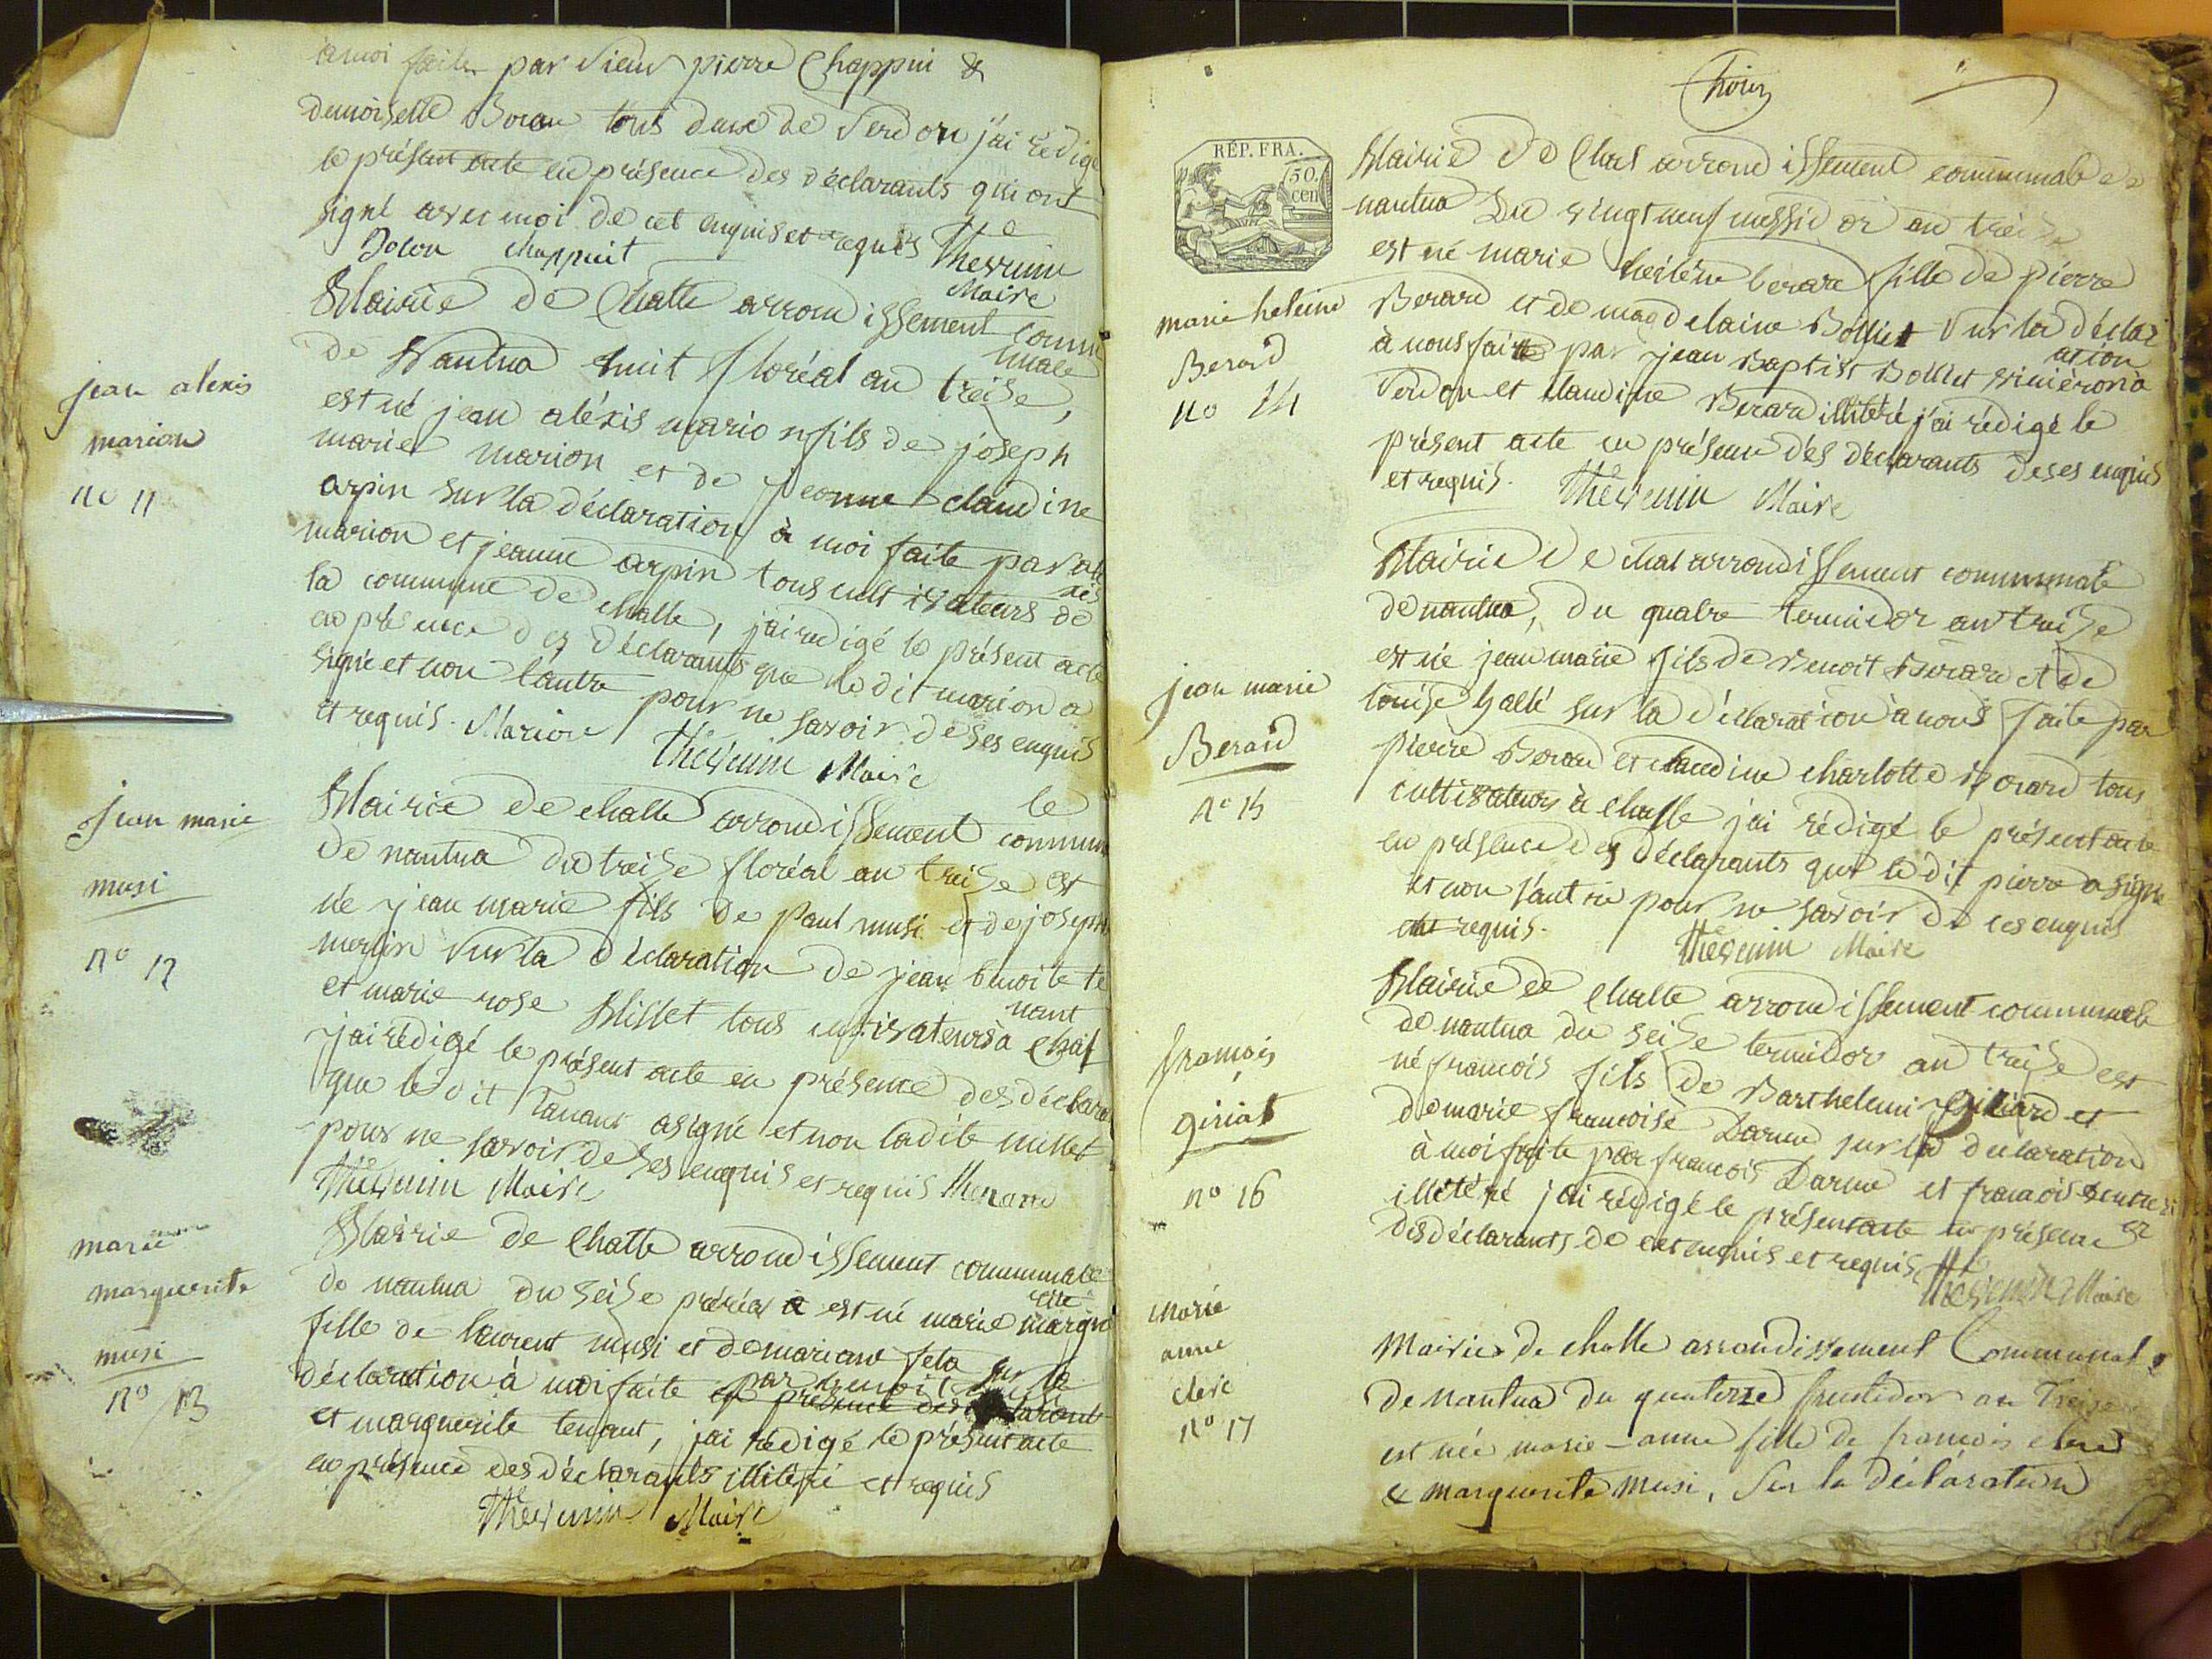 a moi faite par sieur pierre Chappui &
demoiselle Boron tous deux de Serdon j'ai rédigé
le présent acte en présence des déclarants qui ont
signé avec moi de cet enquis et requis Thevenin
Bolon Chappuit
Maire
jean alexis
marion
no 11
Mairie de Challe arrondissement commu
nale
de Nantua huit floréal an treise,
est né jean aléxis marion fils de joseph
marie marion et de jeanne claudine
arpin sur la déclaration à moi faite par ale
xis
marion et jeanne arpin tous cultivateurs de
la commune de challe, j'ai redigé le présent acte
en présence des déclarants que le dit marion a
signé et non l'autre pour ne savoir de ses enquis
et requis. Marion Thevenin Maire
jean marie
musi
no 12
Mairie de challe arrondissement commun
le
de nantua du treise floréal an treise est
né jean marie fils de paul musi et de joseph
merlin sur la déclaration de jean benoit te
nant
et marie rose Millet tous cultivateurs à Chal
j'ai rédigé le présent acte en présence des déclara
que le dit Tanant a signé et non la dite millet
pour ne savoir de ses enquis et requis
Thevenin Maire
marie
marguerite
musi
no 13
Mairie de Challe arrondissement communale
de nantua du seise préréal est né marie margue
rite
fille de laurent musi et de mariane sur la
déclaration à moi faite par benoit
en présence des déclarants
et marguerite tenant, j'ai rédigé le présent acte
en présence des déclarants illitéré et requis
Thevenin Maire
RÉP. FRA.
50.
cen
marie heleine
Berard
no 14
Mairie de Chal arrondissement communale de
nantua Du vingt neuf messidor an treise
est né marie heiléne berard fille de pierre
Berard et de magdelaine Bolliet sur la déclar
ation
à nous faite par jean Baptist Bolliet vinièron à
Serdon et claudine Berard illitéré j'ai rédigé le
présent acte en présence dés déclarants de ses enquis
et requis. Thevenin Maire
jean marie
Berard
no 15
Mairie de chal arrondissement communale
de nantua, du quatre termidor an treise
est né jean marie fils de Benoit Berard et de
louise sur la déclaration à nous faite par
pierre Berard et claudine charlotte Berard tous
cultivateurs à challe j'ai rédigé le présent acte
en présence des déclarants que le dit pierre a signé
et non l'autre pour ne savoir de ces enquis
et requis.
Thevenin Maire
francois
girias
no 16
Mairie de Challe arrondissement communale
de nantua du seise termidor an treise est
né francois fils de Barthelemi et
de marie francoise Darme sur la declaration
à moi faite par francois Darme et francois
illitéré j'ai rédigé le présent acte en présence
des déclarants de cet enquis et requis,
Thevenin Maire
Marie
anne
clerc
no 17
Mairie de challe arrondissement Communale
de Nantua du quatorze fructidor an Treize
est née marie-anne fille de francois clerc
& marguerite Musi, Sur la déclaration